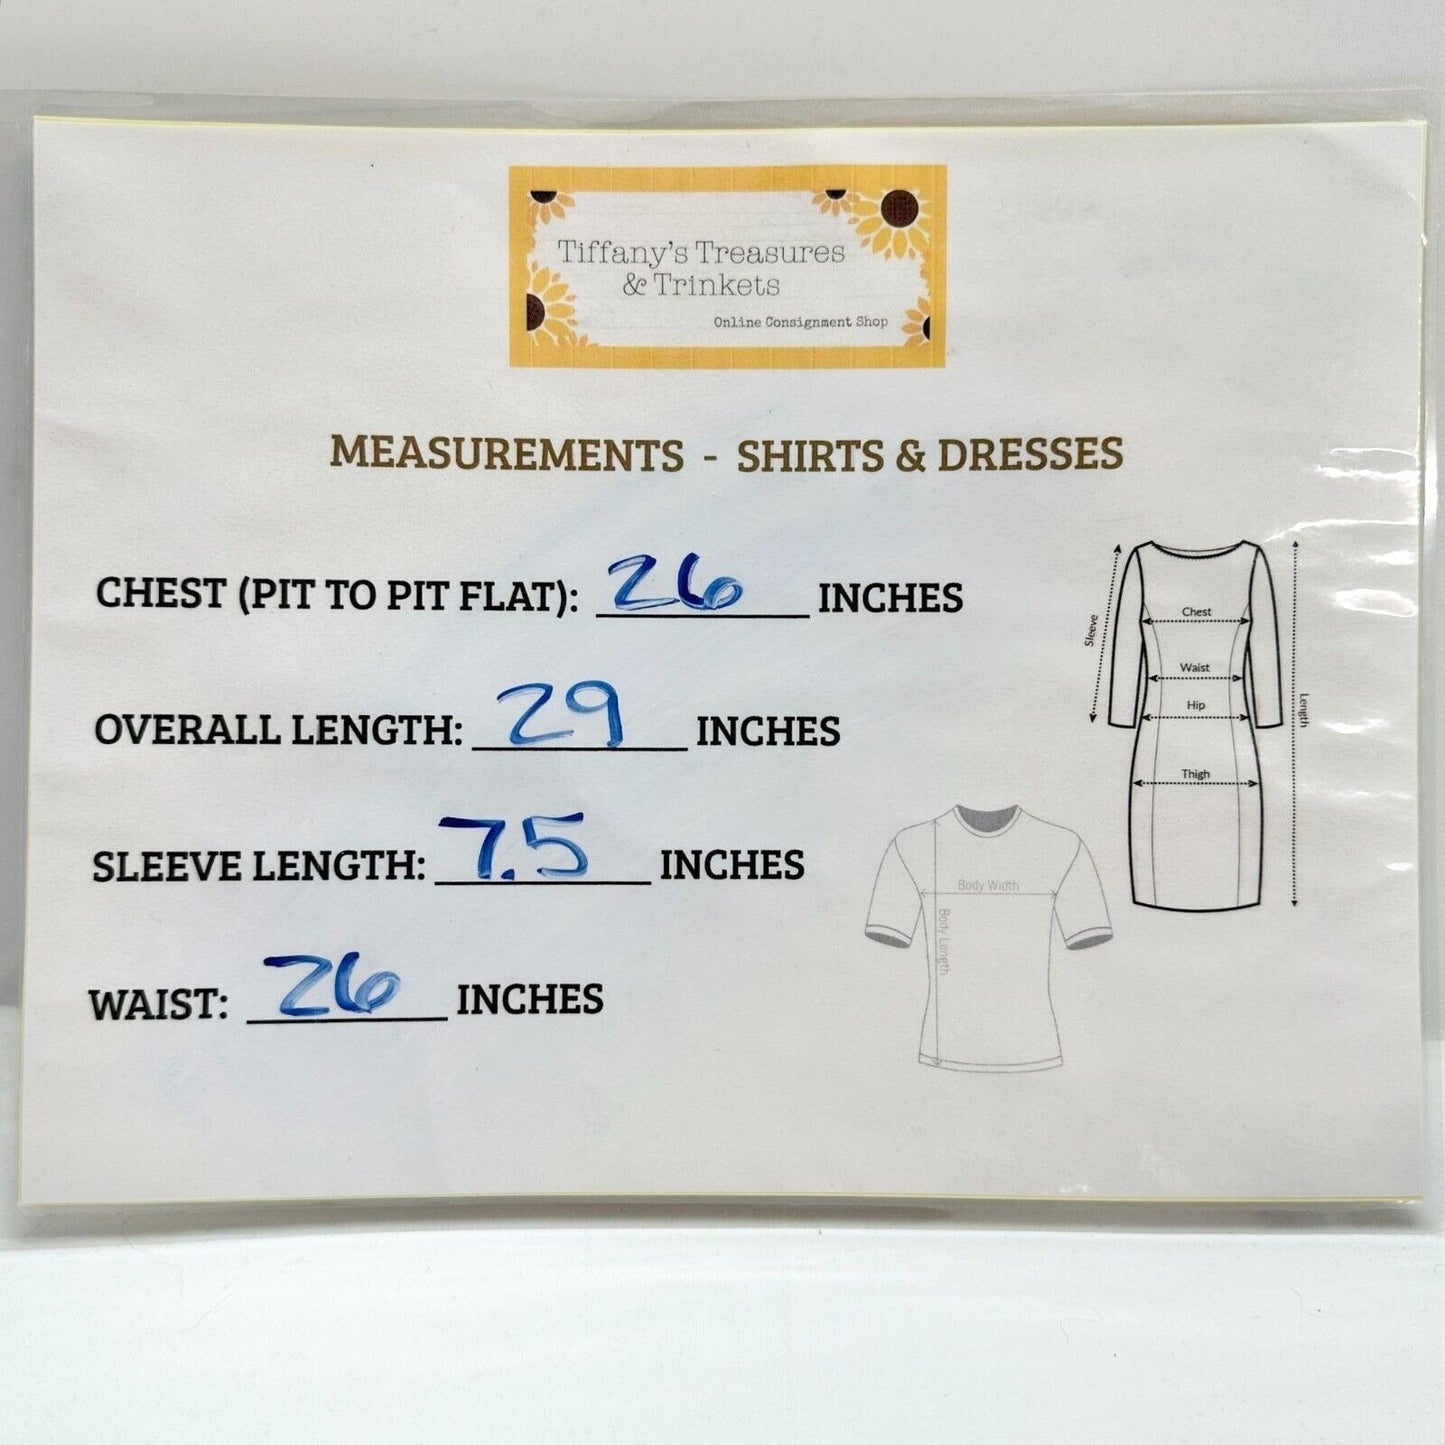 Tiffany's Treasures
& Trinkets
Online Consignment Shop
MEASUREMENTS - SHIRTS & DRESSES
CHEST (PIT TO PIT FLAT): 26 INCHES
OVERALL LENGTH: 29 INCHES
SLEEVE LENGTH: 7.5 INCHES
WAIST: 26 INCHES
Sleeve
Chest
Waist
Hip
Length
Thigh
Body Width
Body Length